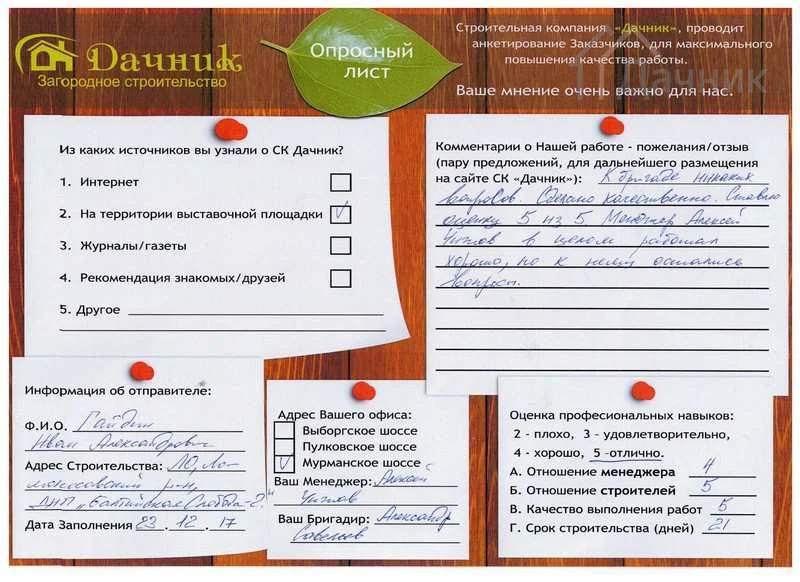 Дачник
Загородное строительство
Опросный
лист
Строительная компания «Дачник», проводит
анкетирование Заказчиков, для максимального
повышения качества работы.
Ваше мнение очень важно для нас.
Дачник
Из каких источников вы узнали о СК Дачник?
1. Интернет
2. На территории выставочной площадки
3. Журналы/газеты
4. Рекомендация знакомых/друзей
5. Другое
Комментарии о Нашей работе - пожелания/отзыв
(пару предложений, для дальнейшего размещения
на сайте СК «Дачник»): К бригаде никаких
вопросов. Сделано качественно. Ставлю
оценку 5 из 5 Менеджер Алексей
в целом работал
хорошо, но к нему остались
вопросы.
Информация об отправителе:
Ф.И.О. Гайдин
Иван Александрович
Адрес Строительства: ЛО, Ло-
моносовский р-н,
ДНП "Балтийская Слобода-2"
Дата Заполнения 23.12.17
Адрес Вашего офиса:
Выборгское шоссе
Пулковское шоссе
Мурманское шоссе
Ваш Менеджер: Алексей
Ваш Бригадир: Александр
Савельев
Оценка професиональных навыков:
2 - плохо, 3 - удовлетворительно,
4 - хорошо, 5 -отлично.
А. Отношение менеджера 4
Б. Отношение строителей 5
В. Качество выполнения работ 5
Г. Срок строительства (дней) 21